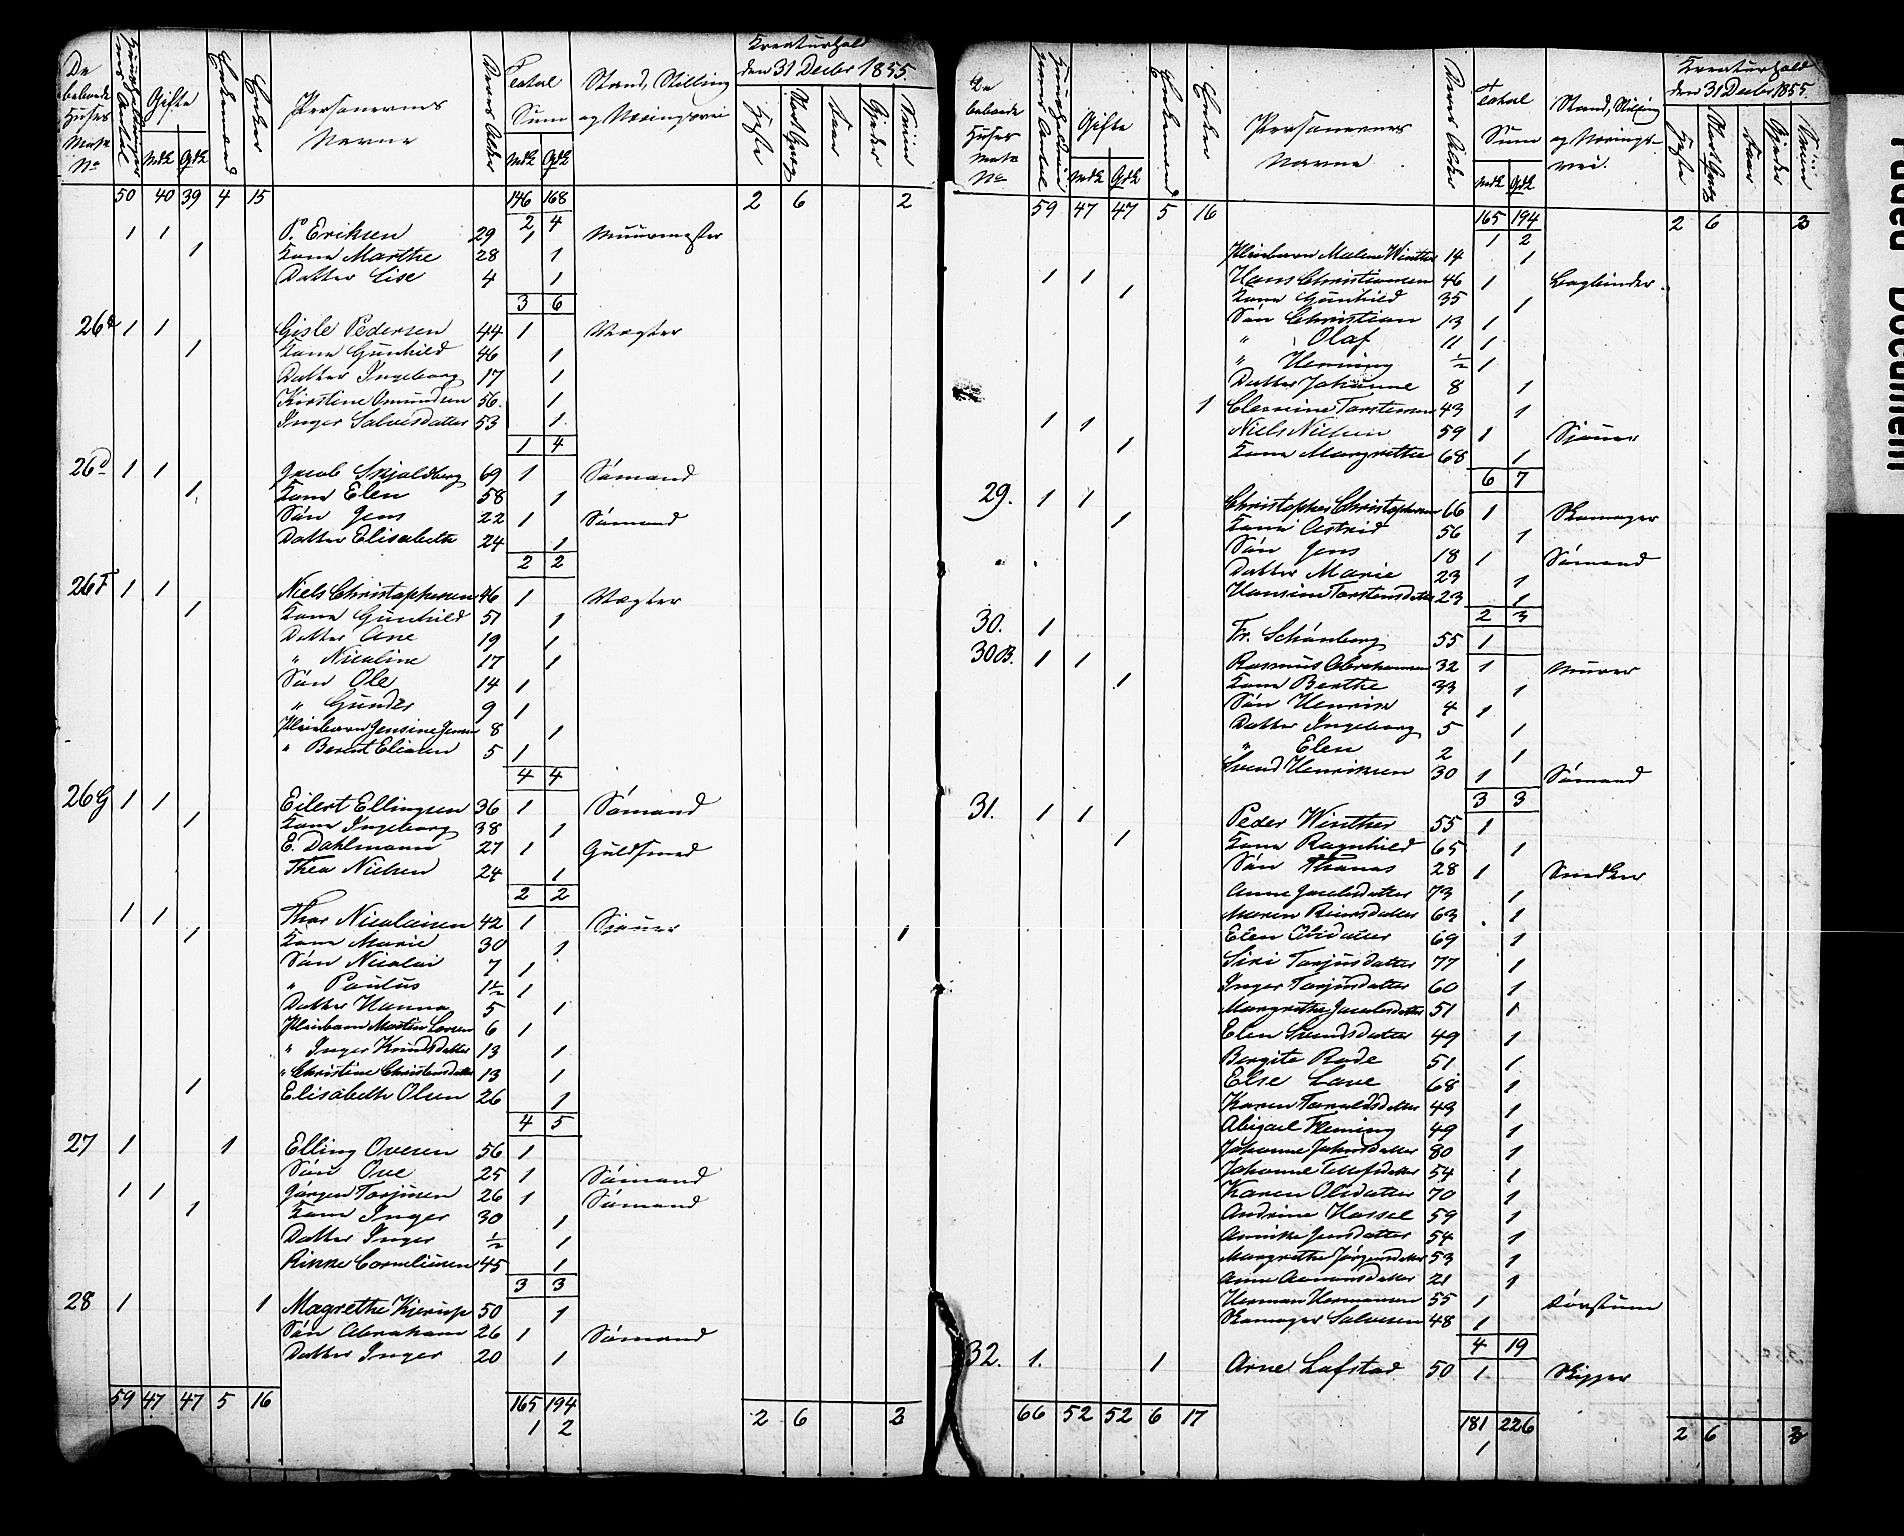 De beboede Huses Matr. No | Huusholdningernes Antal | Gifte Mdk Qdk | Enkemænd | Enker | Personernes Navne | Deres Alder | Total Sum Mdk Qdk | Stand, Stilling og Næringsvei | Kreaturhold den 31 Decbr 1855. Heste | Stort Qvæg | Faar | Gjeder | Sviin
50 40 39 4 15 146 168 2 6 2
2 4
1 1 P. Eriksen 29 1 Muurmester
1 Kone Marthe 28 1
Datter Lise 4 1
3 6
26 1 1 Gisle Pedersen 44 1 Vægter
1 Kone Gunhild 46 1
Datter Ingeborg 17 1
Kirstine Omundsen 56 1
Inger Salvesdatter 53 1
1 4
26D 1 1 Jacob Skjoldberg 69 1 Sømand
1 Kone Elen 58 1
Søn Jens 22 1 Sømand
Datter Elisabeth 24 1
2 2
26F 1 1 Niels Christophersen 46 1 Vægter
1 Kone Gunhild 51 1
Datter Ane 19 1
" Nicoline 17 1
Søn Ole 14 1
" Gunder 9 1
Pleiebarn Jensine Jensen 8 1
" Berent Eliasen 5 1
4 4
26G 1 1 Eilert Ellingsen 36 1 Sømand
1 Kone Ingeborg 38 1
E. Dahlmann 27 1 Guldsmed
Thea Nielsen 24 1
2 2
1 1 Thor Nicolaisen 42 1 Sjouer
1 Kone Marie 30 1 1
Søn Nicolai 7 1
" Paulus 1½ 1
Datter Hanna 5 1
Pleiebarn Martin Larsen 6 1
" Inger Knudsdatter 13 1
" Christine Christensdatter 13 1
1 Elisabeth Olsen 26 1
4 5
27 1 1 Elling Ovesen 56 1
Søn Ove 25 1 Sømand
1 1 Jørgen Torjusen 26 1 Sømand
1 Kone Inger 30 1
Datter Inger ½ 1
Rinne Corneliusen 45 1
3 3
28 1 1 Magrethe Kjerup 50 1
Søn Abraham 26 1 Sømand
Datter Inger 20 1
59 47 47 5 16 165 194 2 6 3
1 2
De beboede Huses Matr. No | Huusholdningernes Antal | Gifte Mdk Qdk | Enkemænd | Enker | Personernes Navne | Deres Alder | Total Sum Mdk Qdk | Stand, Stilling og Næringsvei. | Kreaturhold den 31 Decbr 1855. Heste | Stort Qvæg | Faar | Gjeder | Sviin
59 47 47 5 16 165 194 2 6 3
1 2
Pleiebarn Malene Winther 14 1
1 1 Hans Christiansen 46 1 Bogbinder
1 Kone Gunhild 35 1
Søn Christian 13 1
" Olaf 11 1
" Henning ½ 1
Datter Johanne 8 1
1 Clemine Torstensen 43 1
1 1 Niels Nielsen 59 1 Sjouer
1 Kone Margrethe 68 1
6 7
29. 1 1 Christopher Christophersen 66 1 Skomager
1 Kone Astrid 56 1
Søn Jens 18 1 Sømand
Datter Marie 23 1
Hansine Torstensdatter 23 1
2 3
30. 1 Fr. Schønberg 55 1
30B. 1 1 Rasmus Abrahamsen 32 1 Murer
1 Kone Berthe 33 1
Søn Henrik 4 1
Datter Ingeborg 5 1
" Elen 2 1
Svend Henriksen 30 1 Sømand
3 3
31. 1 1 Peder Winther 55 1
1 Kone Ragnhild 65 1
Søn Thomas 28 1 Snedker
Anne Jacobsdatter 73 1
Maren Reiersdatter 63 1
Elen Olsdatter 69 1
Siri Torjusdatter 77 1
Inger Torjusdatter 60 1
Margrethe Jacobsdatter 51 1
Elen Svendsdatter 49 1
Bergite Rode 51 1
Else Lave 68 1
Karen Taraldsdatter 43 1
Abigael Fleming 49 1
Johanne Johnsdatter 80 1
Johanne Tellefsdatter 54 1
Karen Olsdatter 70 1
Andrine Hassel 59 1
Annike Jensdatter 54 1
Margrethe Jørgensdatter 53 1
Anne Aamundsdatter 21 1
Herman Hermansen 55 1
Skomager Salvesen 48 1
4 19
32. 1. 1 Arne Lofstad 50 1 Skipper
66 52 52 6 17 181 226 2 6 3
1